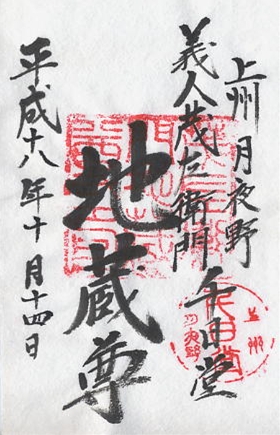 上州 月夜野
義人茂左衛門 千日堂
地蔵尊
平成十八年十月十四日
上州
月夜野